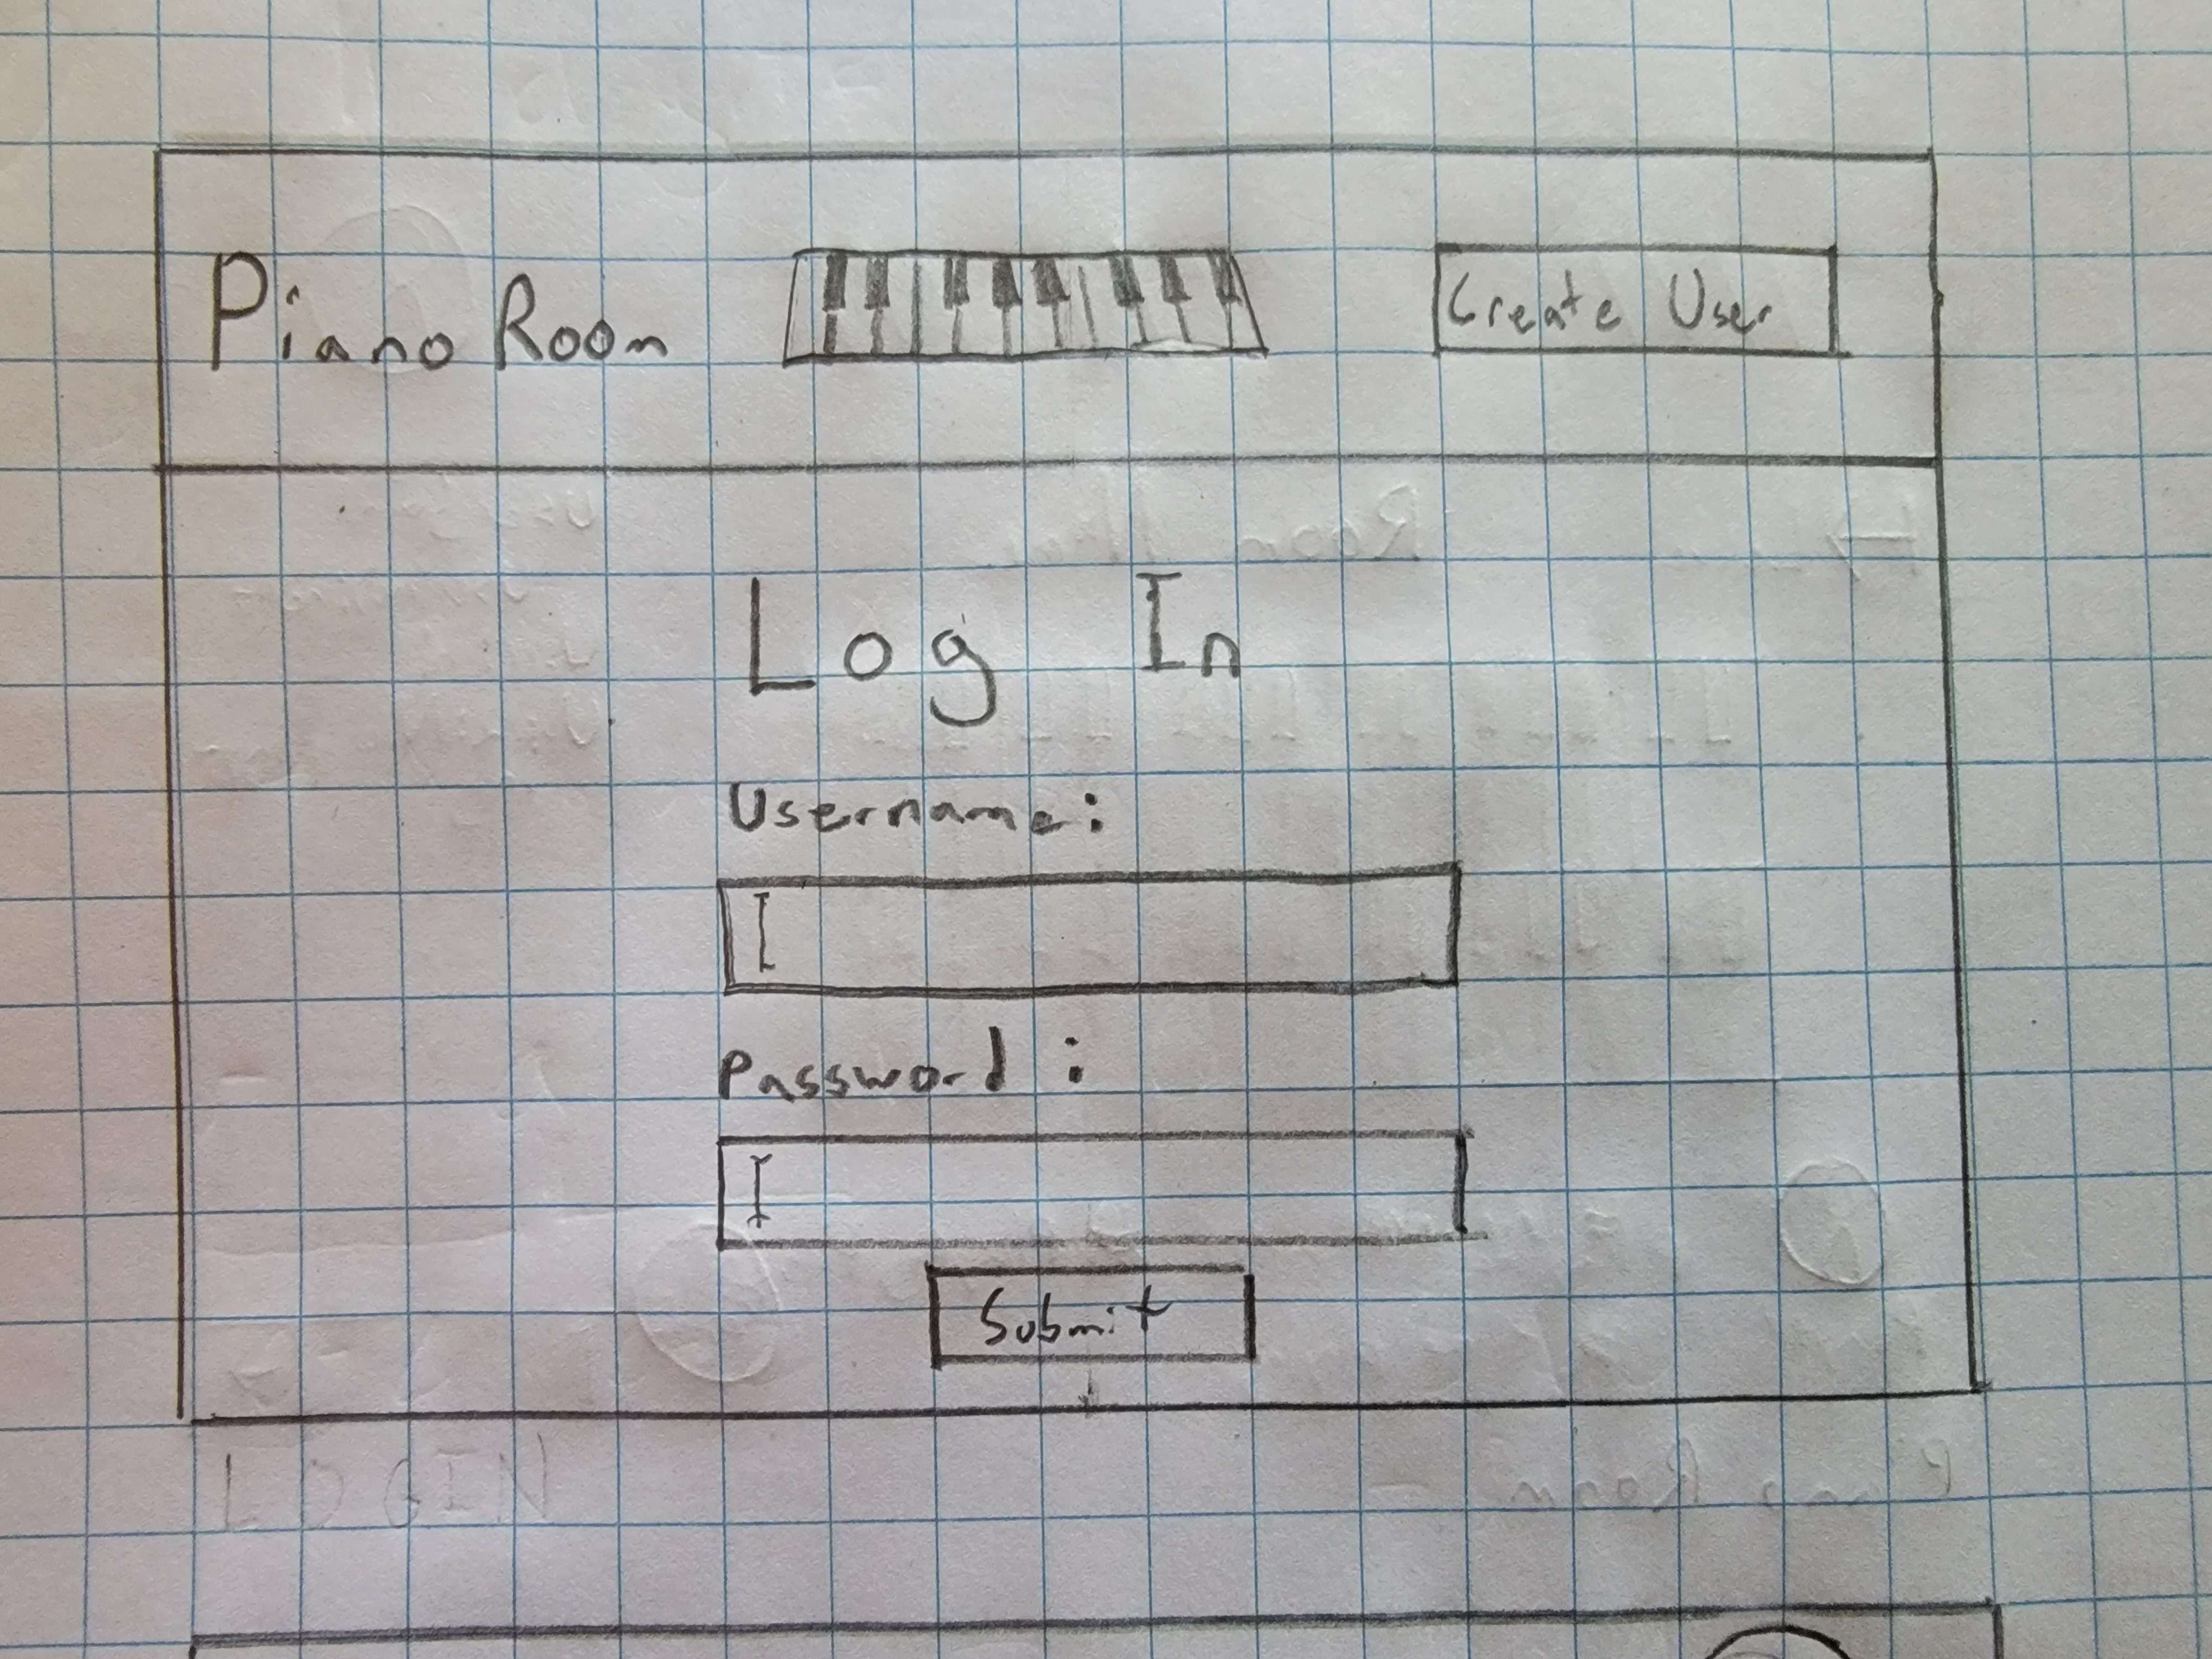 Piano Room
Create User
Log In
Username:
Password :
Submit
LOGIN